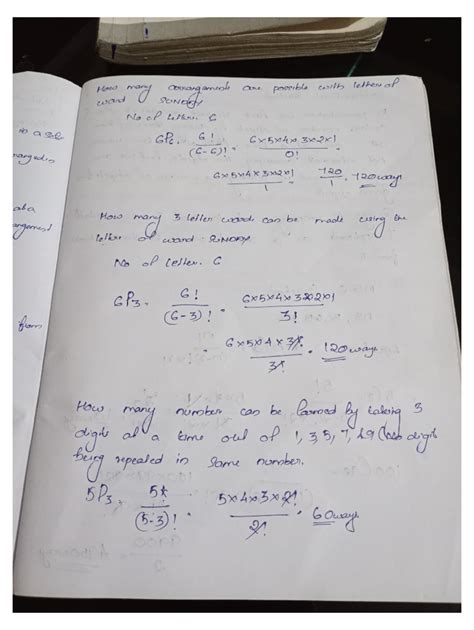 How many arrangements are possible with letters of
word SUNDAY
No of letter. 6
6P6 = 6! / (6-6)! = 6×5×4×3×2×1 / 0!
6×5×4×3×2×1 / 1 = 720 / 1 = 720 ways
How many 3 letter words can be made using the
letter of word - SUNDAY
No of letter. 6
6P3 = 6! / (6-3)! = 6×5×4×3×2×1 / 3!
= 6×5×4×3! / 3! = 120 ways
How many number can be formed by taking 3
digits at a time out of 1, 3, 5, 7, &9 (no digit
being repeated in same number.
5P3 = 5! / (5-3)! = 5×4×3×2! / 2! = 60 ways